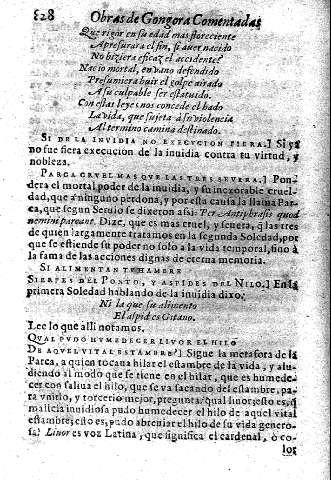 828 Obras de Gongora Comentadas
Que rigor en su edad mas floreciente
Apresurara el fin, si auer nacido
No hiziera eficaz el accidente?
Nacio mortal, en vano defendido
Presumiera huir el golpe airado
A su culpable ser estatuido.
Con estas leyes nos concede el hado
La vida, que sujeta à su violencia
Al termino camina destinado.
SI DE LA INVIDIA NO EXECVCION FIERA.] Si ya
no fue fiera execucion de la inuidia contra tu virtud, y
nobleza.
PARCA CRVEL MAS QVE LAS TRES SEVERA.] Pon
dera el mortal poder de la inuidia, y su inexorable cruel-
dad, que a ninguno perdona, y por esta causa la llama Par-
ca, que segun Seruio se dixeron assi: Per Antiphrasis quod
nemini parcant. Dize, que es mas cruel, y seuera, q̃ las tres
de quien largamente tratamos en la segunda Soledad, por
que se estiende su poder no solo a la vida temporal, sino à
la fama de las acciones dignas de eterna memoria.
SI ALIMENTAN TE HAMBRE
SIERPES DEL PONTO, Y ASPIDES DEL NILO.] En la
primera Soledad hablando de la inuidia dixo:
Ni la que su alimento
El aspid es Gitano.
Lee lo que alli notamos.
QVAL PVDO HVMEDECER LIVOR EL HILO
DE AQVEL VITAL ESTAMBRE?] Sigue la metafora de la
Parca, a quien tocaua hilar el estambre de la vida, y alu-
diendo al modo que se tiene en el hilar, que es humede-
cer con saliua el hilo, que se va sacando del estambre, pa-
ra vnirlo, y torcerlo mejor, pregunta: qual liuor, esto es, q̃
malicia inuidiosa pudo humedecer el hilo de aquel vital
estambre; esto es, pudo abreuiar el hilo de su vida genero-
sa? Liuor es voz Latina, que significa el cardenal, ò co-
lor